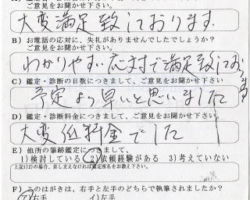 ご意見をお聞かせ下さい
大変満足致しております。
B) お電話の応対に、失礼がありませんでしたでしょうか?
ご意見をお聞かせ下さい
わかりやすい応対で満足致しております
C) 鑑定・診断の日数につきまして、ご意見をお聞かせ下さい
予定より早いと思いました
D) 鑑定・診断の料金につきまして、
ご意見をお聞かせ下さい
大変低料金でした
E) 他所の筆跡鑑定につきまして、
1)検討している 2)依頼経験がある 3)考えていない
F) このはがきは、右手と左手のどちらで執筆されましたか?
右手 イ)左手